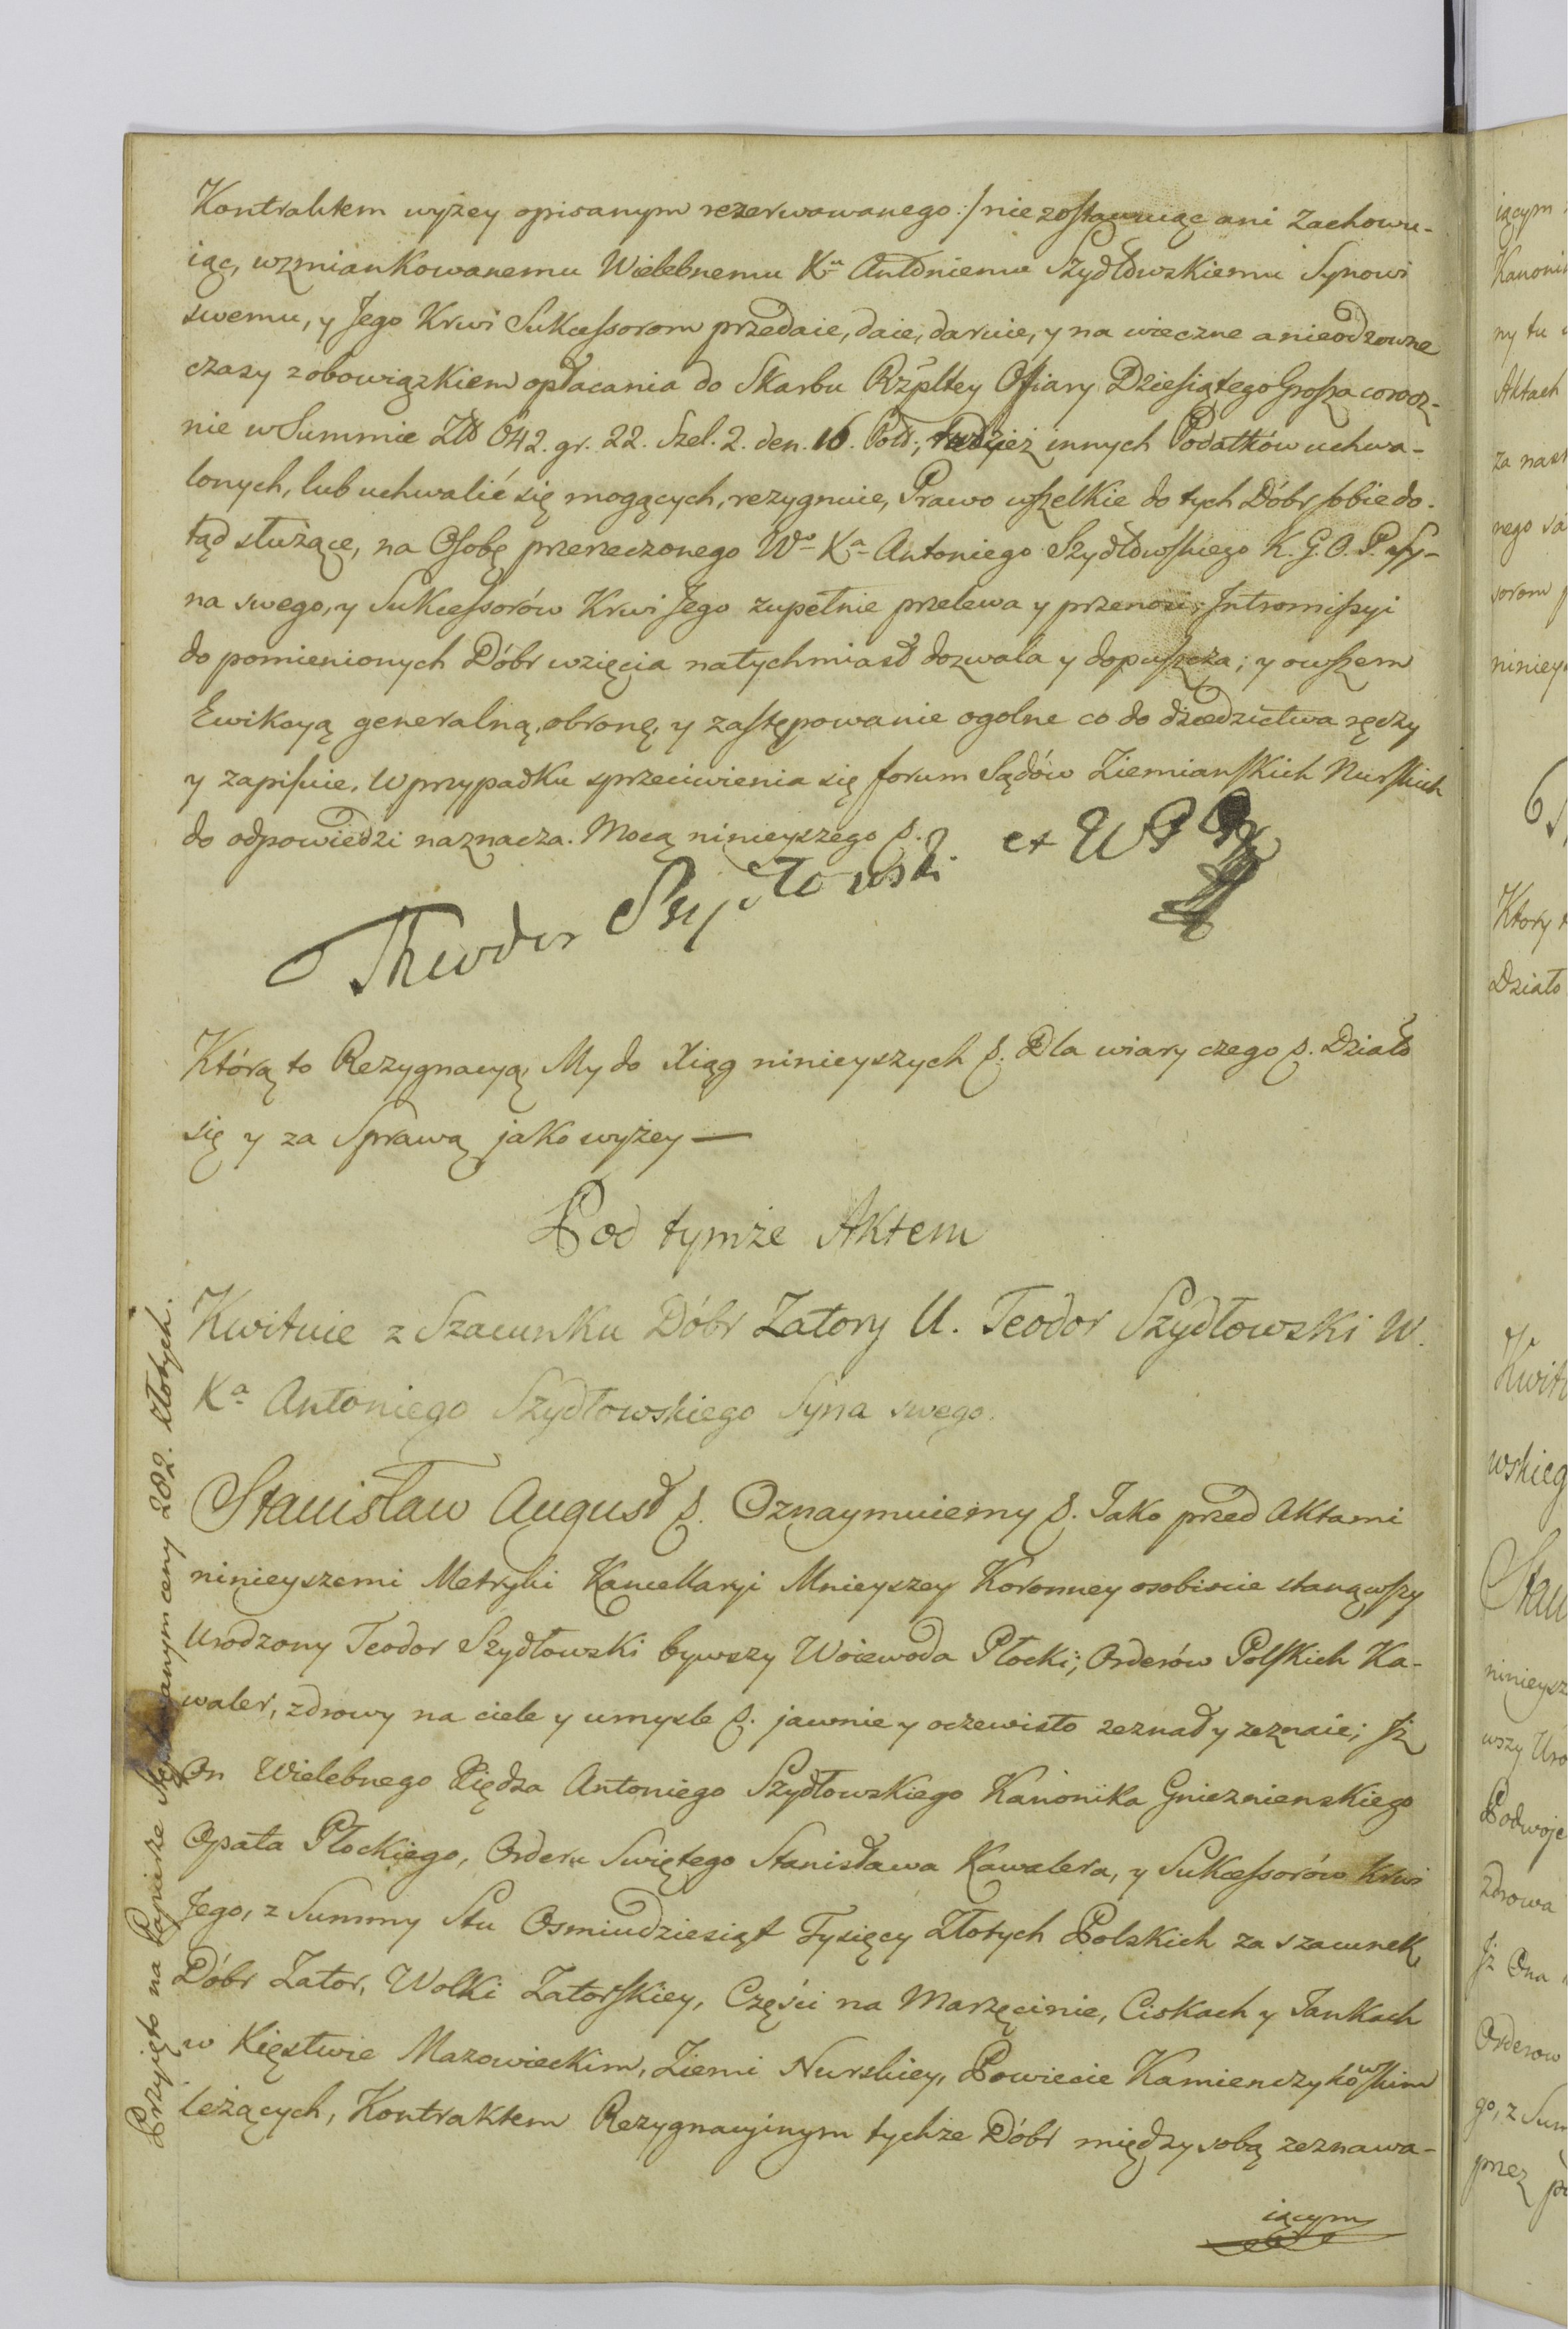 Kontraktem wyżey opisanym rezerwowanego:/ nie zostawuiąc ani zachowu-
iąc, wzmiankowanemu Wielebnemu Xu Antoniemu Szydłowskiemu Synowi
swemu, y Jego Krwi Sukcessorom przedaie, daie, daruie, y na wieczne a nieodzowne
czasy z obowiązkiem opłacania do Skarbu Rzpltey Ofiary Dziesiątego Grosza corocz-
nie w Summie Złł 642. gr. 22. Szel. 2. den. 16. Pold; tudzież innych Podatków uchwa-
lonych, lub uchwalić się mogących, rezygnuie, Prawo wszelkie do tych Dóbr sobie do-
tąd służące, na Osobę przerzeczonego Wo Xa Antoniego Szydłowskiego K. G. O. P. Sy-
na swego, y Sukcessorów Krwi Jego zupełnie przelewa y przenosi; Intromissyi
do pomienionych Dóbr wzięcia natychmiast dozwala y dopuszcza; y owszem
Ewikcyą generalną, obronę, y zastępowanie ogolne co do dziedzictwa ręczy
y zapisuie. W przypadku sprzeciwienia się forum Sądów Ziemianskich Nurskich
do odpowiedzi naznacza. Mocą ninieyszego p.
Theodor Szydłowski et W P P
Którą to Rezygnacyą, My do Xiąg ninieyszych p. Dla wiary czego p. Działo
się y za Sprawą jako wyżey —
Pod tymże Aktem
Kwituie z Szacunku Dóbr Zatory U. Teodor Szydłowski W.
Xa Antoniego Szydłowskiego Syna swego.
Stanisław August p. Oznaymuiemy p. Jako przed Aktami
ninieyszemi Metryki Kancellaryi Mnieyszey Koronney osobiscie stanąwszy
Urodzony Teodor Szydłowski bywszy Woiewoda Płocki; Orderów Polskich Ka-
waler, zdrowy na ciele y umysle p. jawnie y oczewisto zeznał y zeznaie; Jż
On Wielebnego Xiędza Antoniego Szydłowskiego Kanonika Gnieznienskiego
Opata Płockiego, Orderu Swiętego Stanisława Kawalera, y Sukcessorów Krwi
Jego, z Summy Stu Osmiudziesiąt Tysięcy Złotych Polskich za szacunek
Dóbr Zator, Wolki Zatorskiey, Części na Marzęcinie, Ciskach y Jankach
w Xięstwie Mazowieckim, Ziemi Nurskiey, Powiecie Kamienczykowskim
leżących, Kontraktem Rezygnacyinym tychże Dóbr między sobą zeznawa-
iącym
Przyięto na Papierze ceny 282. złotych.
iącym
Kanoni
ny tu
Aktach
za nast
nego
sorom
niniey
Ktory
Działo
Kwitu
wskieg
Stan
ninieysz
wszy Uro
Podwoje
zdrowa
Jż Ona
Orderow
go, z Sum
przez